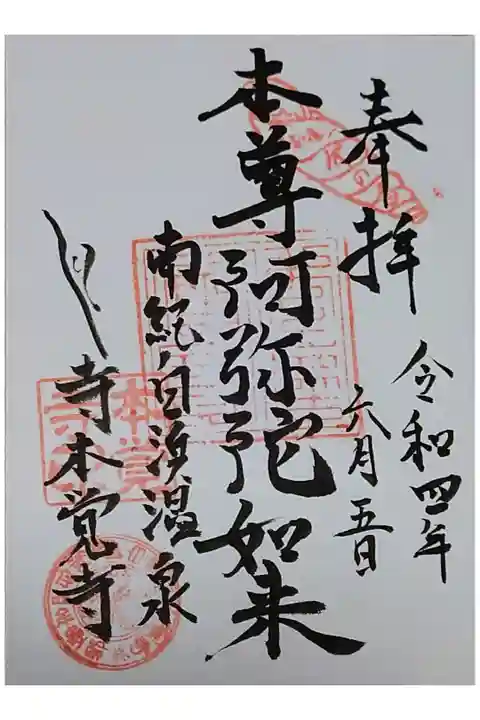 奉拝
令和四年
六月五日
本尊阿弥陀如来
南紀白浜温泉
貝寺本覚寺
本覚